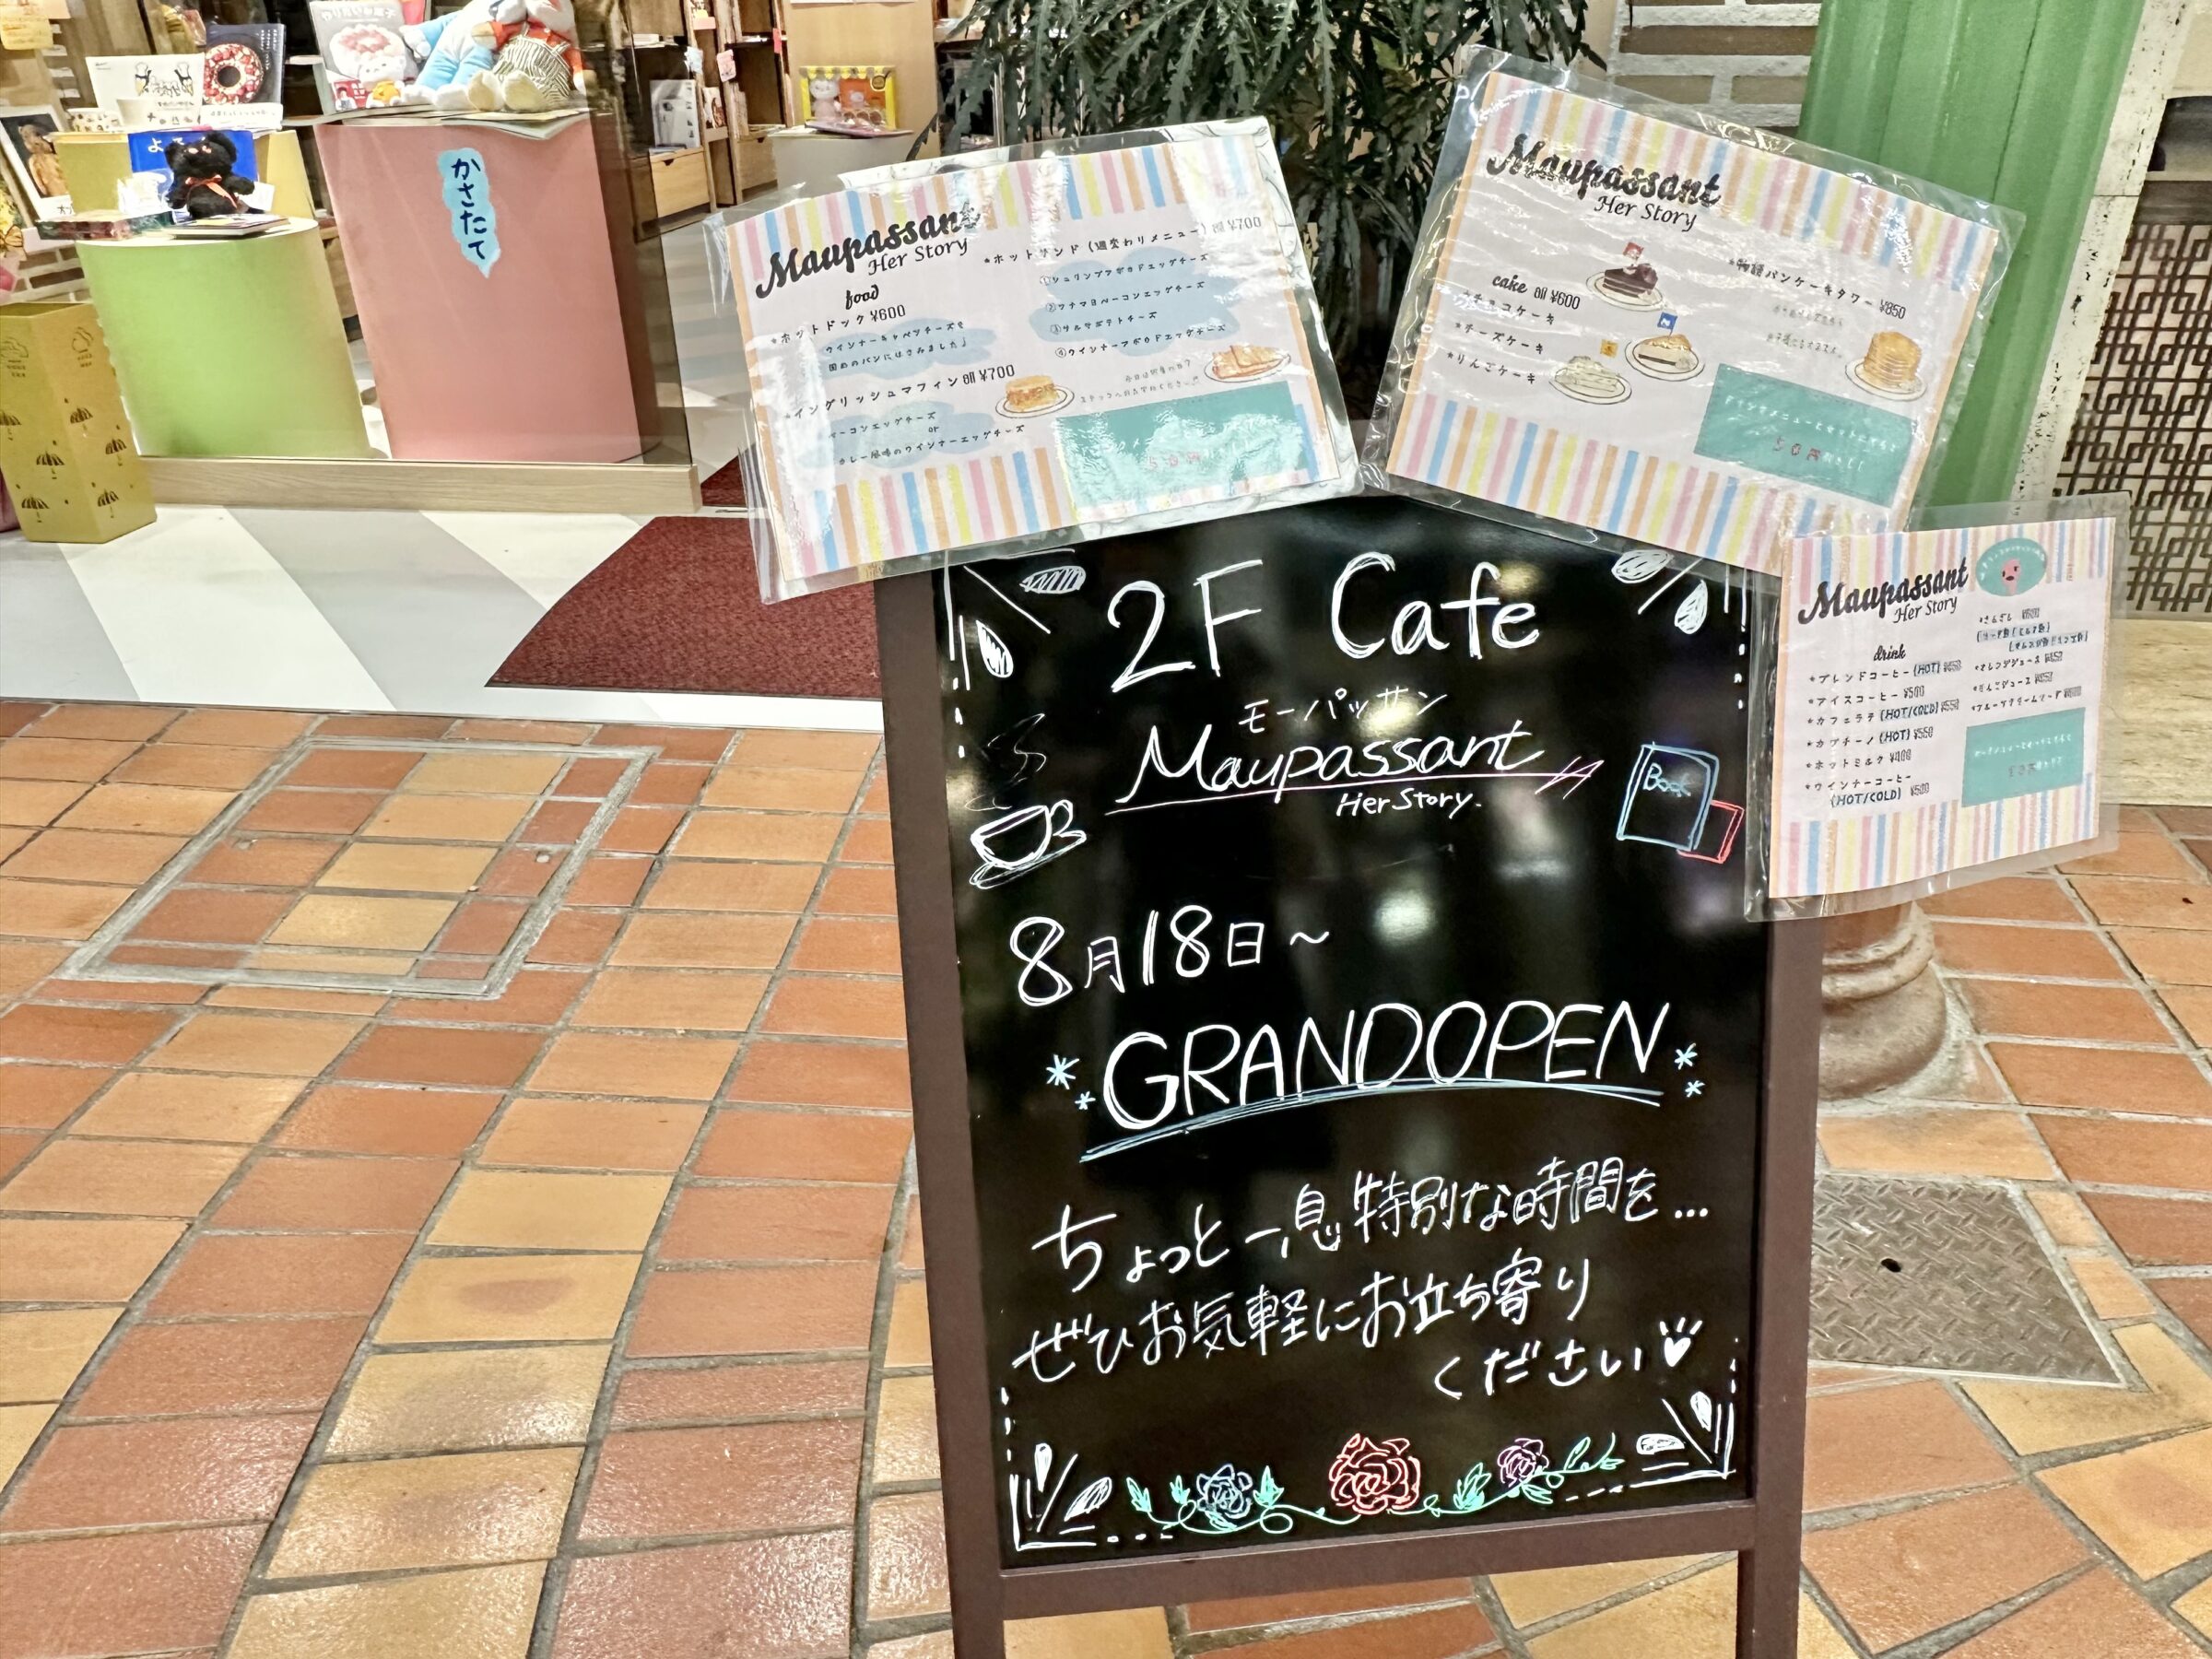 かさたて
Maupassant
Her Story
food
*ホットドック ¥600
ウインナーキャベツチーズを
固めのパンにはさみました♩
*イングリッシュマフィン all ¥700
ベーコンエッグチーズ
or
カレー風味のウインナーエッグチーズ
*ホットサンド (週変わりメニュー) all ¥700
①シュリンプアボカドエッグチーズ
②ツナマヨベーコンエッグチーズ
③サルサポテトチーズ
④ウインナーアボカドエッグチーズ
50円
Maupassant
Her Story
cake all ¥600
*チョコケーキ
*チーズケーキ
*りんごケーキ
パンケーキタワー ¥850
ドリンクメニューとセットで
50円
Maupassant
Her Story
drink
*ブレンドコーヒー (HOT) ¥450
*アイスコーヒー ¥500
*カフェラテ (HOT/COLD) ¥550
*カプチーノ (HOT) ¥550
*ホットミルク ¥400
*ウインナーコーヒー
(HOT/COLD) ¥500
*オレンジジュース
*りんごジュース
*フルーツクリームソーダ
2F Cafe
モーパッサン
Maupassant
Her Story.
Book
8月18日～
GRANDOPEN
ちょっと一息特別な時間を...
ぜひお気軽にお立ち寄り
ください